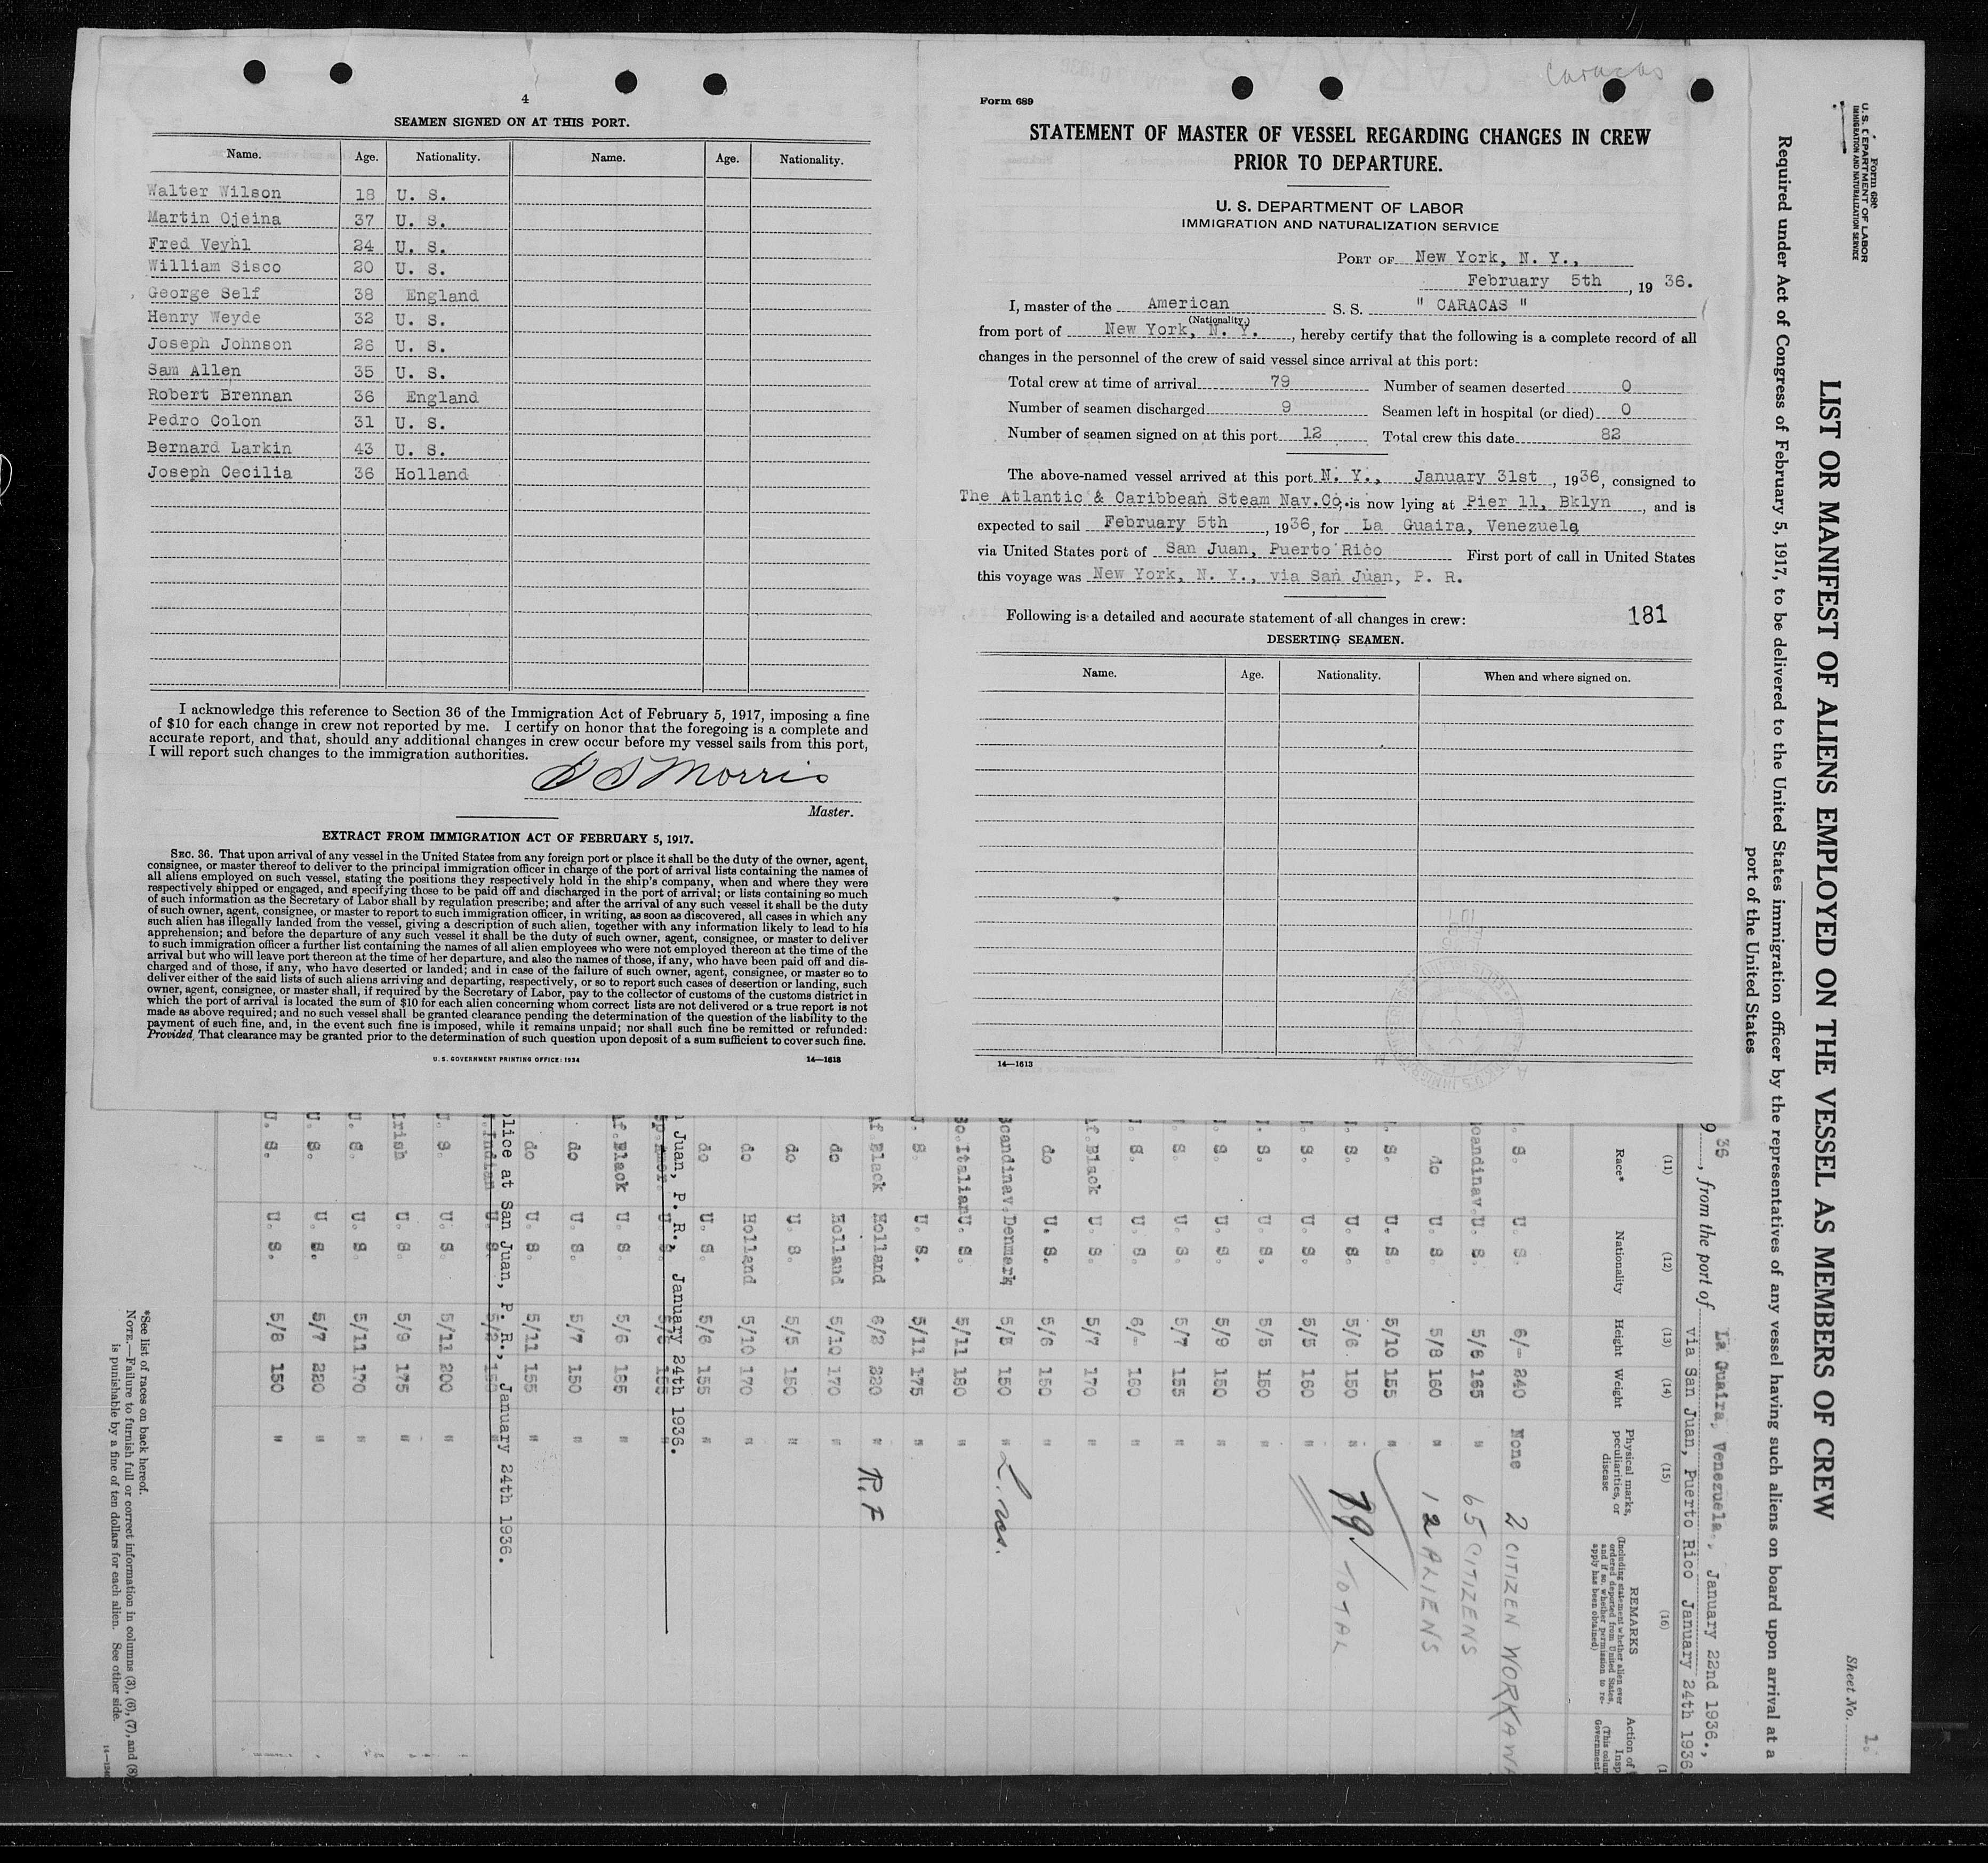 4
SEAMEN SIGNED ON AT THIS PORT.
Name. Age. Nationality. Name. Age. Nationality.
Walter Wilson 18 U. S.
Martin Ojeina 37 U. S.
Fred Veyhl 24 U. S.
William Sisco 20 U. S.
George Self 38 England
Henry Weyde 32 U. S.
Joseph Johnson 26 U. S.
Sam Allen 35 U. S.
Robert Brennan 36 England
Pedro Colon 31 U. S.
Bernard Larkin 43 U. S.
Joseph Cecilia 36 Holland
I acknowledge this reference to Section 36 of the Immigration Act of February 5, 1917, imposing a fine
of $10 for each change in crew not reported by me. I certify on honor that the foregoing is a complete and
accurate report, and that, should any additional changes in crew occur before my vessel sails from this port,
I will report such changes to the immigration authorities.
Morris
Master.
EXTRACT FROM IMMIGRATION ACT OF FEBRUARY 5, 1917.
SEC. 36. That upon arrival of any vessel in the United States from any foreign port or place it shall be the duty of the owner, agent,
consignee, or master thereof to deliver to the principal immigration officer in charge of the port of arrival lists containing the names of
all aliens employed on such vessel, stating the positions they respectively hold in the ship's company, when and where they were
respectively shipped or engaged, and specifying those to be paid off and discharged in the port of arrival; or lists containing so much
of such information as the Secretary of Labor shall by regulation prescribe; and after the arrival of any such vessel it shall be the duty
of such owner, agent, consignee, or master to report to such immigration officer, in writing, as soon as discovered, all cases in which any
such alien has illegally landed from the vessel, giving a description of such alien, together with any information likely to lead to his
apprehension; and before the departure of any such vessel it shall be the duty of such owner, agent, consignee, or master to deliver
to such immigration officer a further list containing the names of all alien employees who were not employed thereon at the time of the
arrival but who will leave port thereon at the time of her departure, and also the names of those, if any, who have been paid off and dis-
charged and of those, if any, who have deserted or landed; and in case of the failure of such owner, agent, consignee, or master so to
deliver either of the said lists of such aliens arriving and departing, respectively, or so to report such cases of desertion or landing, such
owner, agent, consignee, or master shall, if required by the Secretary of Labor, pay to the collector of customs of the customs district in
which the port of arrival is located the sum of $10 for each alien concerning whom correct lists are not delivered or a true report is not
made as above required; and no such vessel shall be granted clearance pending the determination of the question of the liability to the
payment of such fine, and, in the event such fine is imposed, while it remains unpaid; nor shall such fine be remitted or refunded:
Provided, That clearance may be granted prior to the determination of such question upon deposit of a sum sufficient to cover such fine.
U. S. GOVERNMENT PRINTING OFFICE: 1934 14—1613
Caracas
Form 689
STATEMENT OF MASTER OF VESSEL REGARDING CHANGES IN CREW
PRIOR TO DEPARTURE.
U. S. DEPARTMENT OF LABOR
IMMIGRATION AND NATURALIZATION SERVICE
PORT OF New York, N. Y.,
February 5th, 19 36.
I, master of the American S. S. " CARACAS "
(Nationality.)
from port of New York, N. Y., hereby certify that the following is a complete record of all
changes in the personnel of the crew of said vessel since arrival at this port:
Total crew at time of arrival 79 Number of seamen deserted 0
Number of seamen discharged 9 Seamen left in hospital (or died) 0
Number of seamen signed on at this port 12 Total crew this date 82
The above-named vessel arrived at this port N. Y., January 31st, 1936, consigned to
The Atlantic & Caribbean Steam Nav.Co. is now lying at Pier 11, Bklyn, and is
expected to sail February 5th, 1936, for La Guaira, Venezuela
via United States port of San Juan, Puerto Rico First port of call in United States
this voyage was New York, N. Y., via San Juan, P. R.
Following is a detailed and accurate statement of all changes in crew: 181
DESERTING SEAMEN.
Name. Age. Nationality. When and where signed on.
14—1613
Form 680
U. S. DEPARTMENT OF LABOR
IMMIGRATION AND NATURALIZATION SERVICE
Sheet No. 1.
LIST OR MANIFEST OF ALIENS EMPLOYED ON THE VESSEL AS MEMBERS OF CREW
Required under Act of Congress of February 5, 1917, to be delivered to the United States immigration officer by the representatives of any vessel having such aliens on board upon arrival at a
port of the United States
36, from the port of La Guaira, Venezuela., January 22nd 1936.,
via San Juan, Puerto Rico January 24th 1936
(11) (12) (13) (14) (15) (16)
Race* Nationality Height Weight Physical marks, peculiarities, or disease REMARKS
(Including statement whether alien ever ordered deported from United States, and if so, whether permission to re-apply has been obtained)
S. U. S. 6/- 240 None 2 CITIZEN WORKAWA
candinav. U. S. 5/6 165 " 65 CITIZENS
do U. S. 5/8 160 " 12 ALIENS
S. U. S. 5/10 155 "
S. U. S. 5/6 150 " 79 TOTAL
S. U. S. 5/5 160 "
S. U. S. 5/5 150 "
S. U. S. 5/9 150 "
S. U. S. 5/7 155 "
S. U. S. 6/- 160 "
f.Black U. S. 5/7 170 "
do U. S. 5/6 150 "
Scandinav. Denmark 5/5 150 " L. res.
So.Italian U. S. 5/11 180 "
U. S. U. S. 5/11 175 "
Af.Black Holland 6/2 220 " R.F
do Holland 5/10 170 "
do U. S. 5/5 150 "
do Holland 5/10 170 "
do U. S. 5/6 155 "
Juan, P. R., January 24th 1936.
Af.Black U. S. 5/6 185 "
do U. S. 5/7 150 "
do U. S. 5/11 155 "
lice at San Juan, P. R., January 24th 1936.
U. S. U. S. 5/11 200 "
Irish U. S. 5/9 175 "
U. S. U. S. 5/11 170 "
U. S. U. S. 5/7 220 "
U. S. U. S. 5/8 150 "
*See list of races on back hereof.
NOTE.—Failure to furnish full or correct information in columns (3), (6), (7), and (8)
is punishable by a fine of ten dollars for each alien. See other side.